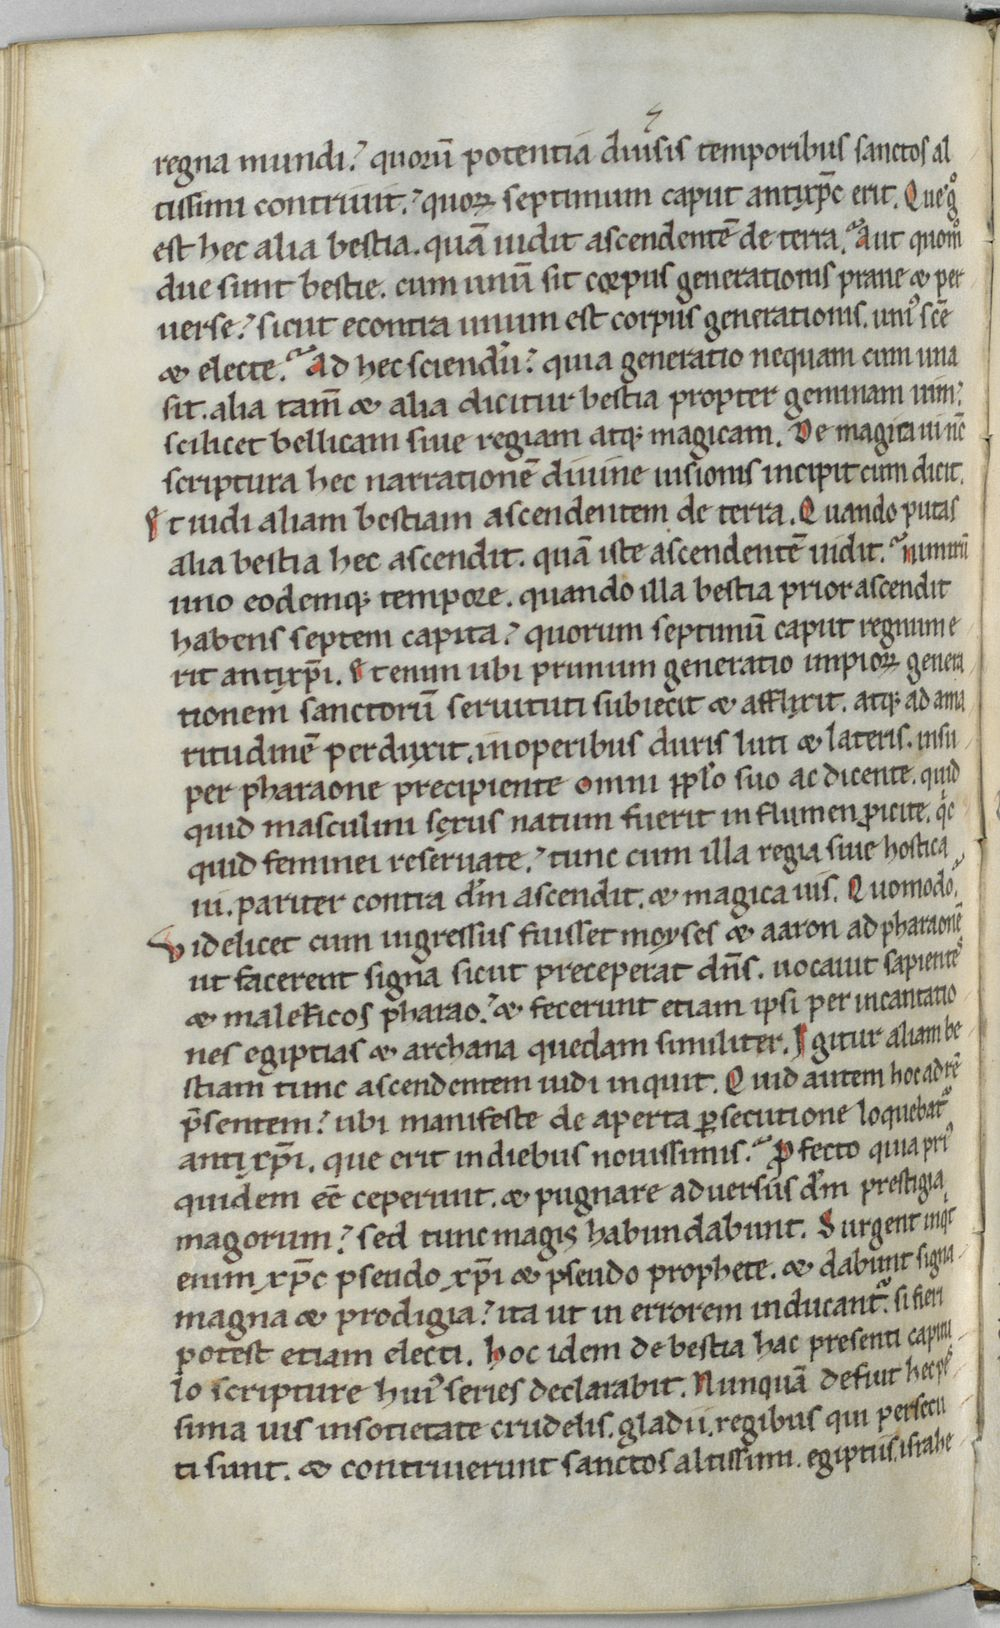 regna mundi? quorū potentia diuisis temporibus sanctos al
tissimi contriuit? quoꝝ septimum caput antixp̄c erit. Que gͦ
est hec alia bestia. quā uidit ascendentē de terra? Aut quomͦ
due sunt bestie. cum unū sit corpus generationis praue & per
uerse? sicut econtra unum est corpus generationis. uniꝰ sc̄e
& electe? Ad hec sciendū? quia generatio nequam cum una
sit. alia tam̄ & alia dicitur bestia propter geminam uim?
scilicet bellicam siue regiam atq; magicam. De magica ui nc̄
scriptura hec narrationē diuine uisionis incipit cum dicit.
Et uidi aliam bestiam ascendentem de terra. Quando putas
alia bestia hec ascendit. quā iste ascendentē uidit? Nimirū
uno eodemq; tempore. quando illa bestia prior ascendit
habens septem capita? quorum septimū caput regnum e
rit antixp̄i. Etenim ubi primum generatio impioꝝ genera
tionem sanctorū seruituti subiecit & afflixit. atq; ad ama
ritudinē perduxit. in operibus duris luti & lateris. insu
per pharaone precipiente omni pp̄lo suo ac dicente. quid
quid masculini sexus natum fuerit in flumen ꝓicite. qͥc
quid feminei reseruate? tunc cum illa regia siue hostica
ui. pariter contra dm̄ ascendit. & magica uis. Quomodo?
Videlicet cum ingressus fuisset moyses & aaron ad pharaonē
ut facerent signa sicut preceperat dn̄s. uocauit sapientes
& maleficos pharao? & fecerunt etiam ipsi per incantatio
nes egiptias & archana quedam similiter. Igitur aliam be
stiam tunc ascendentem uidi inquit. Quid autem hoc ad rē
p̄sentem? ubi manifeste de aperta ꝑsecutione loquebat᷑
antixp̄i. que erit in diebus nouissimis? Ꝓfecto quia priꝰ
quidem ec̄ ceperunt. & pugnare aduersus dm̄ prestigia
magorum? sed tunc magis habundabunt. Surgent inqͥt
enim xp̄c pseudo xp̄i & pseudo prophete. & dabunt signa
magna & prodigia? ita ut in errorem inducant᷑. si fieri
potest etiam electi. Hoc idem de bestia hac presenti capitu
lo scripture huiꝰ series declarabit. Nunquā defuit hec pes
sima uis in societate crudelis. gladii. regibus qui persecu
ti sunt. & contriuerunt sanctos altissimi. egiptiis. israhe